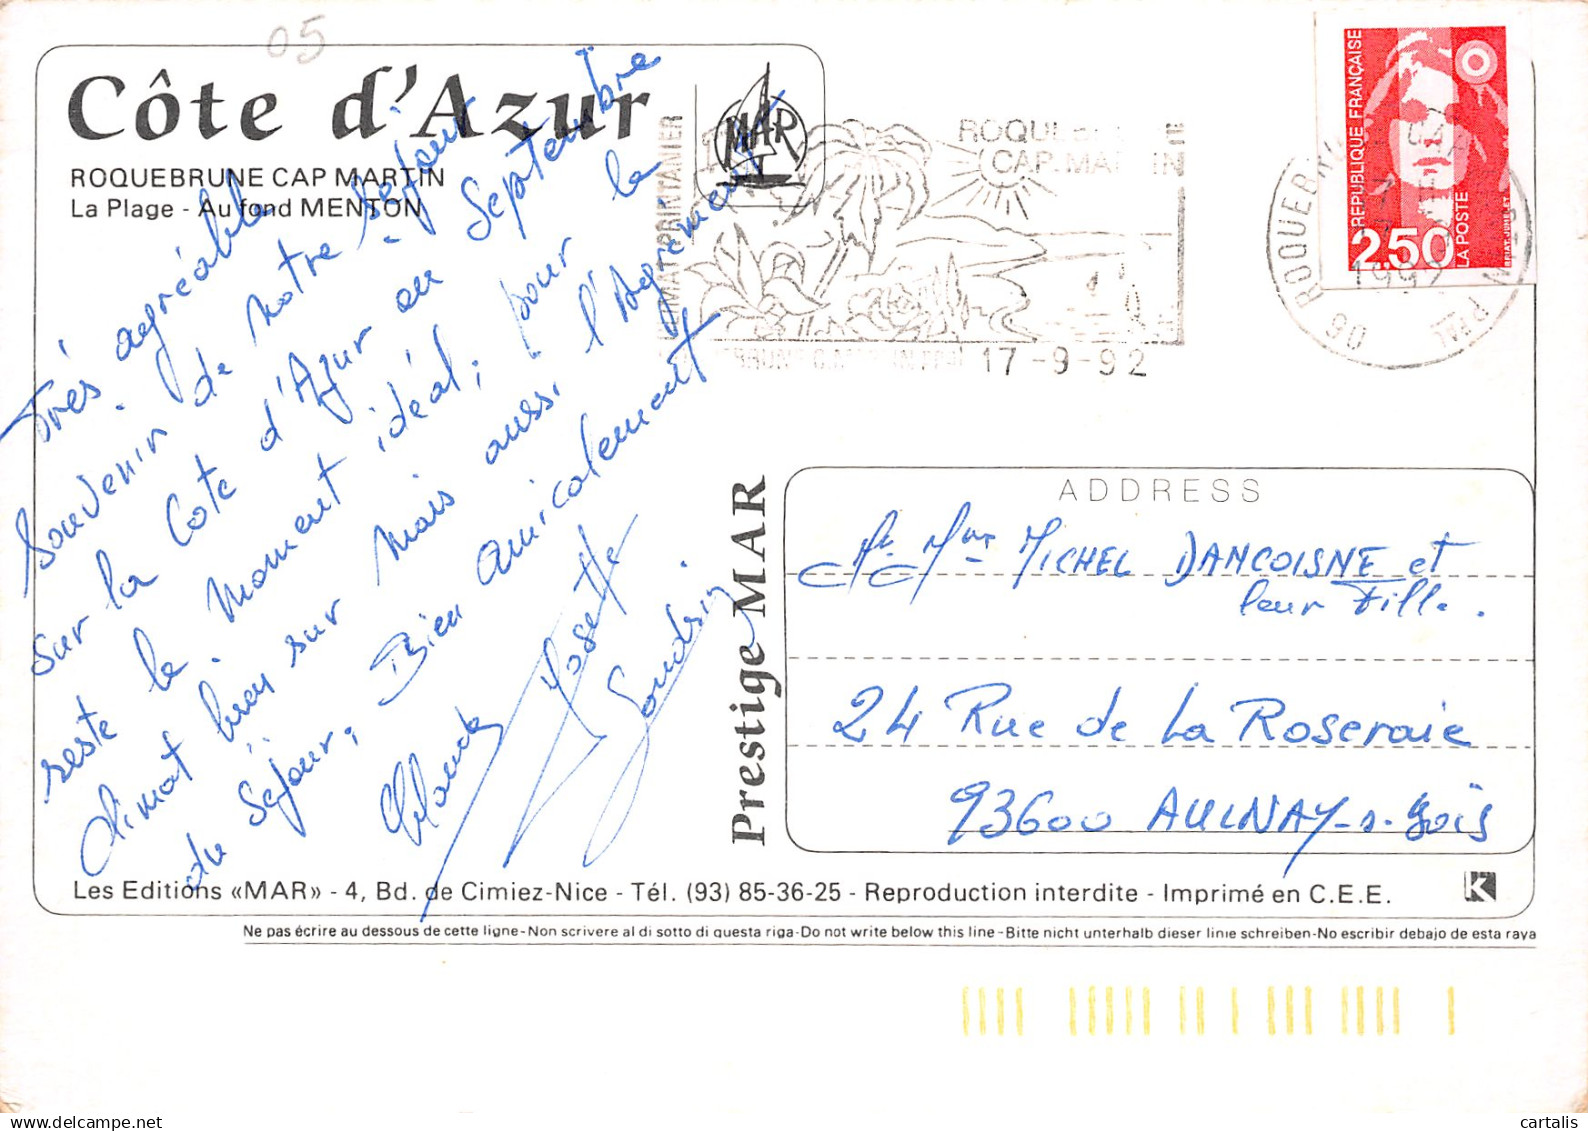 05
Côte d'Azur
ROQUEBRUNE CAP MARTIN
La Plage - Au fond MENTON
MAR
Très agréable
Souvenir de Notre Séjour
sur la Cote d'Azur en Septembre
reste le Moment idéal; pour le
climat bien sur mais aussi l'Agrément
du Séjour; Bien amicalement
Claude Josette
Goudrin
CLIMAT PRINTANIER
CAP.MARTIN
17-9-92
06 ROQUEBRUNE
1992
REPUBLIQUE FRANÇAISE
2,50
LA POSTE
BRIAT. JUMELET
Prestige MAR
ADDRESS
Mr Mme MICHEL DANCOISNE et
leur Fille.
24 Rue de La Roseraie
93600 AULNAY-s-Bois
Les Editions «MAR» - 4, Bd. de Cimiez-Nice - Tél. (93) 85-36-25 - Reproduction interdite - Imprimé en C.E.E.
K
Ne pas écrire au dessous de cette ligne-Non scrivere al di sotto di questa riga-Do not write below this line-Bitte nicht unterhalb dieser linie schreiben-No escribir debajo de esta raya
cartalis